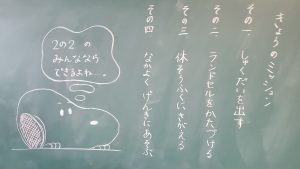 きょうのミッション
その一、しゅくだいを出す
その二、ランドセルをかたづける
その三、体そうふくにきがえる
その四、なかよくげんきにあそぶ
2の2の
みんななら
できるよね…。